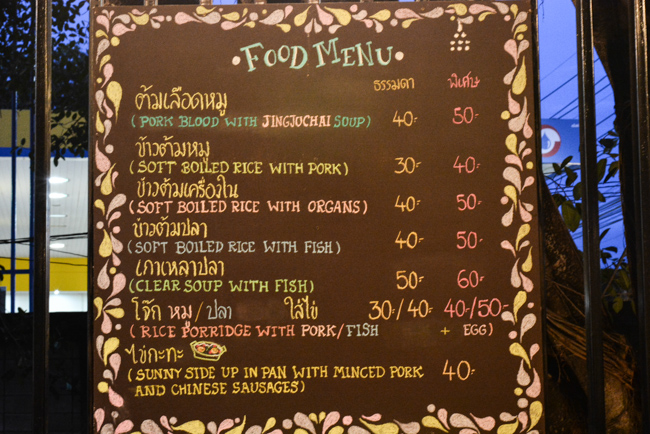 • FOOD MENU •
ธรรมดา พิเศษ
ต้มเลือดหมู
(PORK BLOOD WITH JINGJUCHAI SOUP) 40.- 50.-
ข้าวต้มหมู
(SOFT BOILED RICE WITH PORK) 30.- 40.-
ข้าวต้มเครื่องใน
(SOFT BOILED RICE WITH ORGANS) 40.- 50.-
ข้าวต้มปลา
(SOFT BOILED RICE WITH FISH) 40.- 50.-
เกาเหลาปลา
(CLEAR SOUP WITH FISH) 50.- 60.-
โจ๊ก หมู/ปลา ใส่ไข่ 30.-/40.- 40.-/50.-
(RICE PORRIDGE WITH PORK/FISH + EGG)
ไข่กะทะ
(SUNNY SIDE UP IN PAN WITH MINCED PORK 40.-
AND CHINESE SAUSAGES)